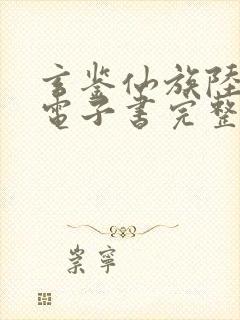 玄鉴仙族陸
電子書完整
崇寧